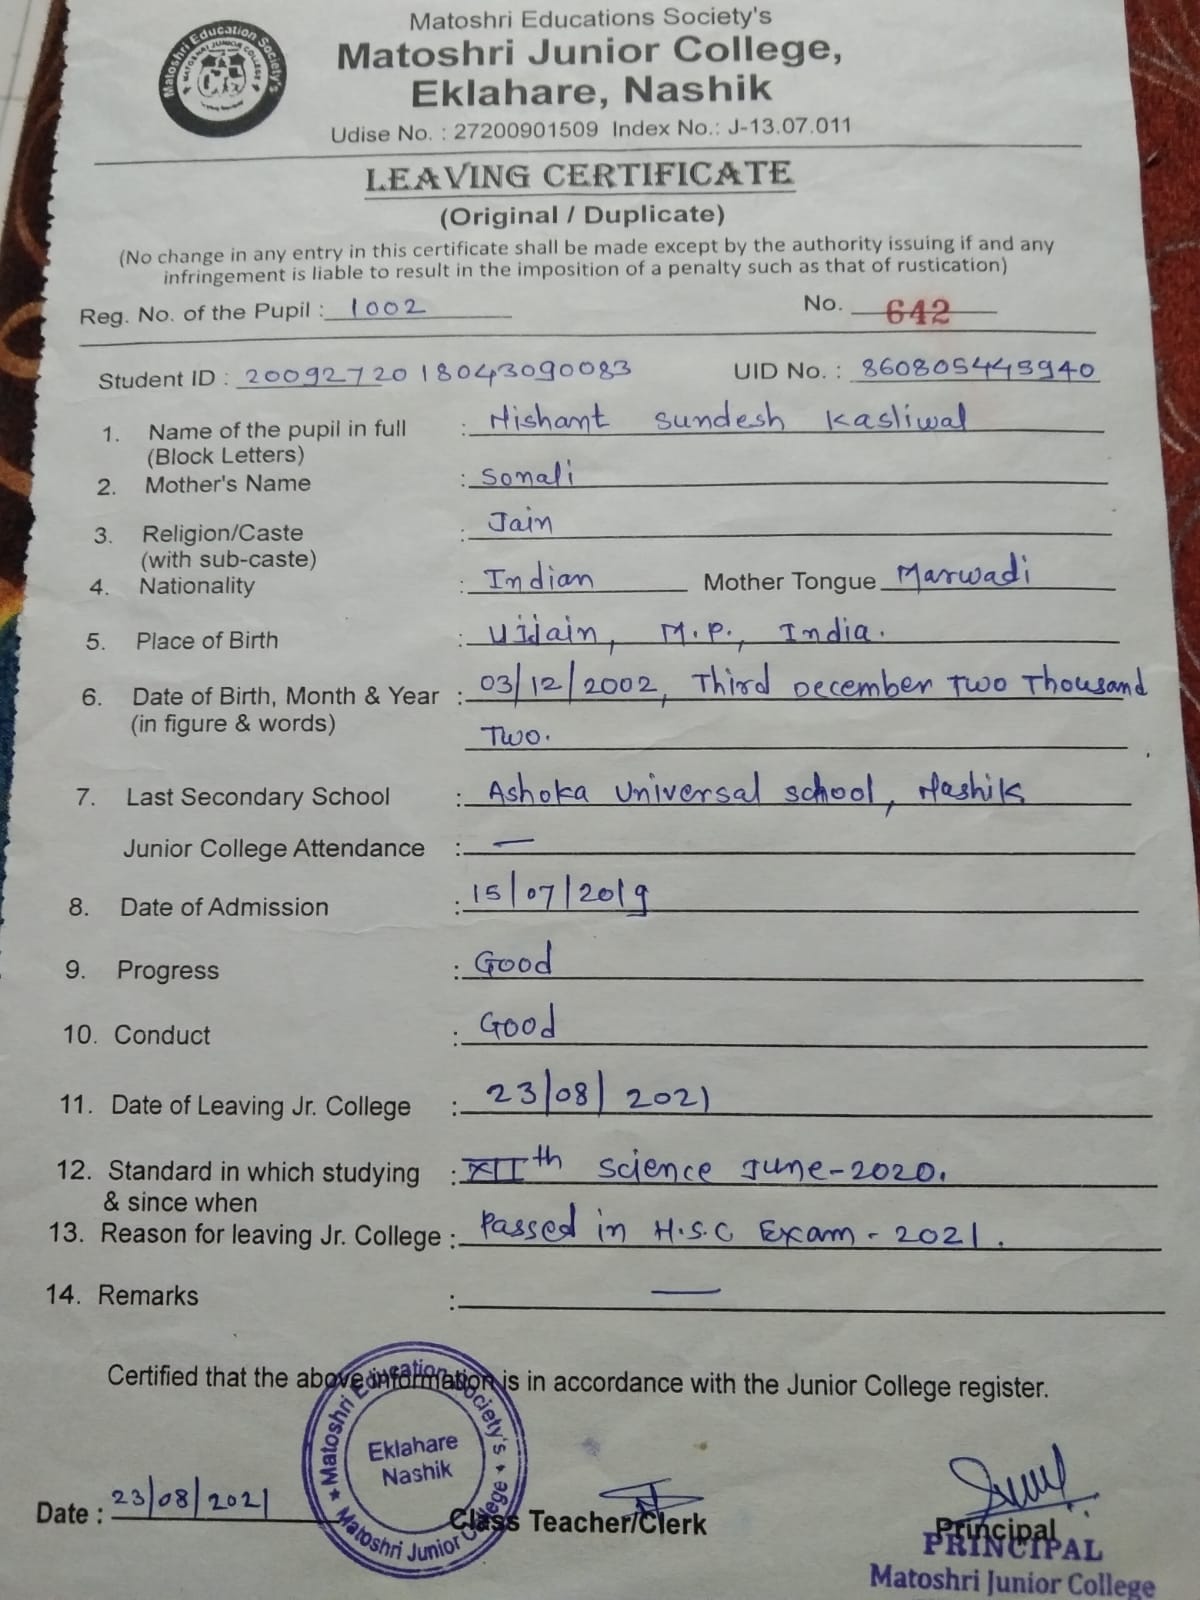 Matoshri Educations Society's
Matoshri Education Society's
MATOSHRI JUNIOR COLLEGE
Matoshri Junior College,
Eklahare, Nashik
Udise No. : 27200901509 Index No.: J-13.07.011
LEAVING CERTIFICATE
(Original / Duplicate)
(No change in any entry in this certificate shall be made except by the authority issuing if and any
infringement is liable to result in the imposition of a penalty such as that of rustication)
Reg. No. of the Pupil : 1002 No. 642
Student ID : 2009272018043090083 UID No. : 860805445940
1. Name of the pupil in full : Nishant Sundesh Kasliwal
(Block Letters)
2. Mother's Name : Sonali
3. Religion/Caste : Jain
(with sub-caste)
4. Nationality : Indian Mother Tongue Marwadi
5. Place of Birth : Ujjain, M.P., India.
6. Date of Birth, Month & Year : 03/12/2002, Third December Two Thousand
(in figure & words) Two.
7. Last Secondary School : Ashoka Universal School, Nashik
Junior College Attendance : —
8. Date of Admission : 15/07/2019
9. Progress : Good
10. Conduct : Good
11. Date of Leaving Jr. College : 23/08/2021
12. Standard in which studying : XIIth Science June-2020.
& since when
13. Reason for leaving Jr. College : Passed in H.S.C Exam - 2021.
14. Remarks : —
Certified that the above information is in accordance with the Junior College register.
Matoshri Education Society's
Eklahare
Nashik
Matoshri Junior College
Date : 23/08/2021 Class Teacher/Clerk Principal
PRINCIPAL
Matoshri Junior College